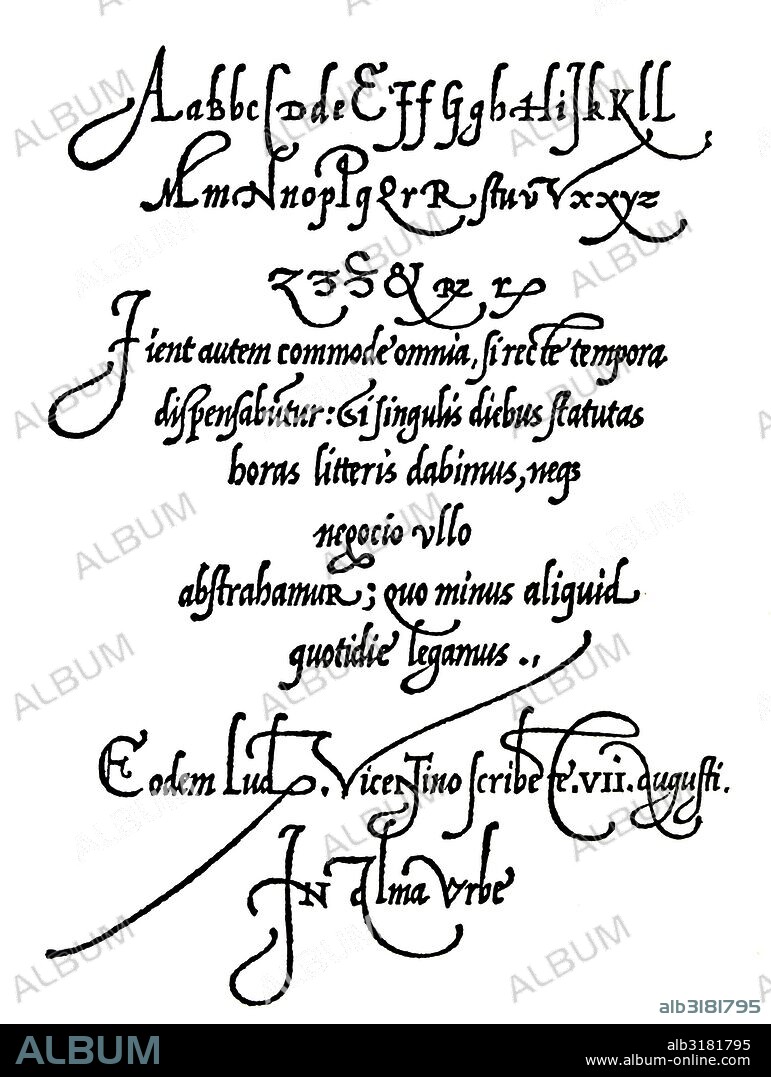 AaBbcſDdeEFfGghHiJkKlL
MmNnopPqQrRſtuvVxxyz
ZƷS&Rz rꝭ
Fient autem commode omnia, si recte tempora
dispensabūtur: & si singulis diebus statutas
horas litteris dabimus, neqꝫ
negocio vllo
abstrahamuR; quo minus aliquid
quotidie legamus .,
Eodem Lud. Vicentino scribēte. VII. augusti.
IN Alma Vrbe
ALBUM
alb3181795
ALBUM
alb3181795
www.album-online.com